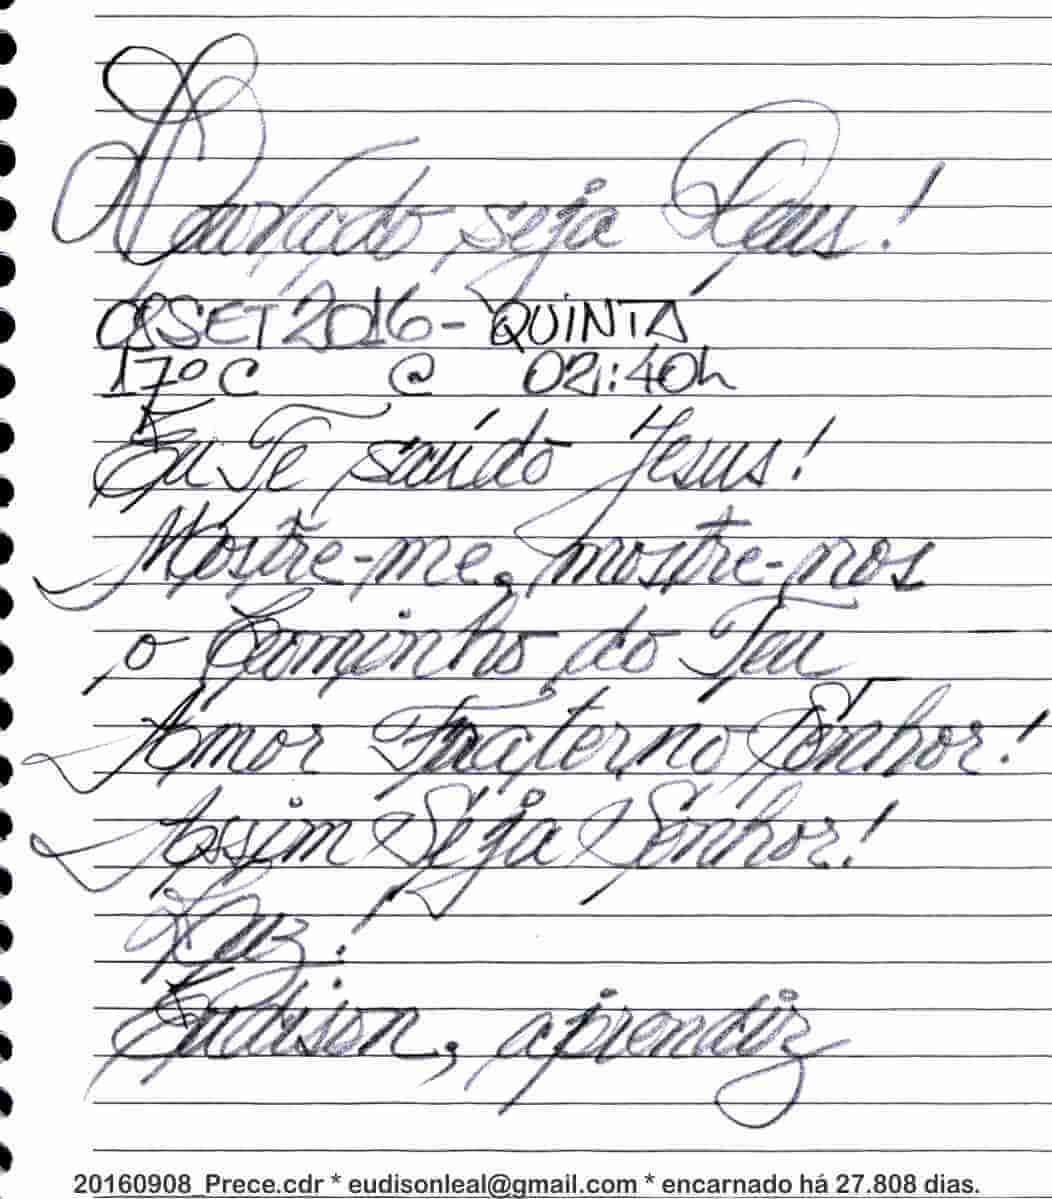 Louvado seja Deus!
08SET2016- QUINTA
17ºC @ 02:40h
Eu Te saúdo Jesus!
Mostre-me, mostre-nos
o Caminho do Teu
Amor Fraterno Senhor!
Assim Seja Senhor!
Luz!
Eudison, aprendiz
20160908_Prece.cdr * eudisonleal@gmail.com * encarnado há 27.808 dias.